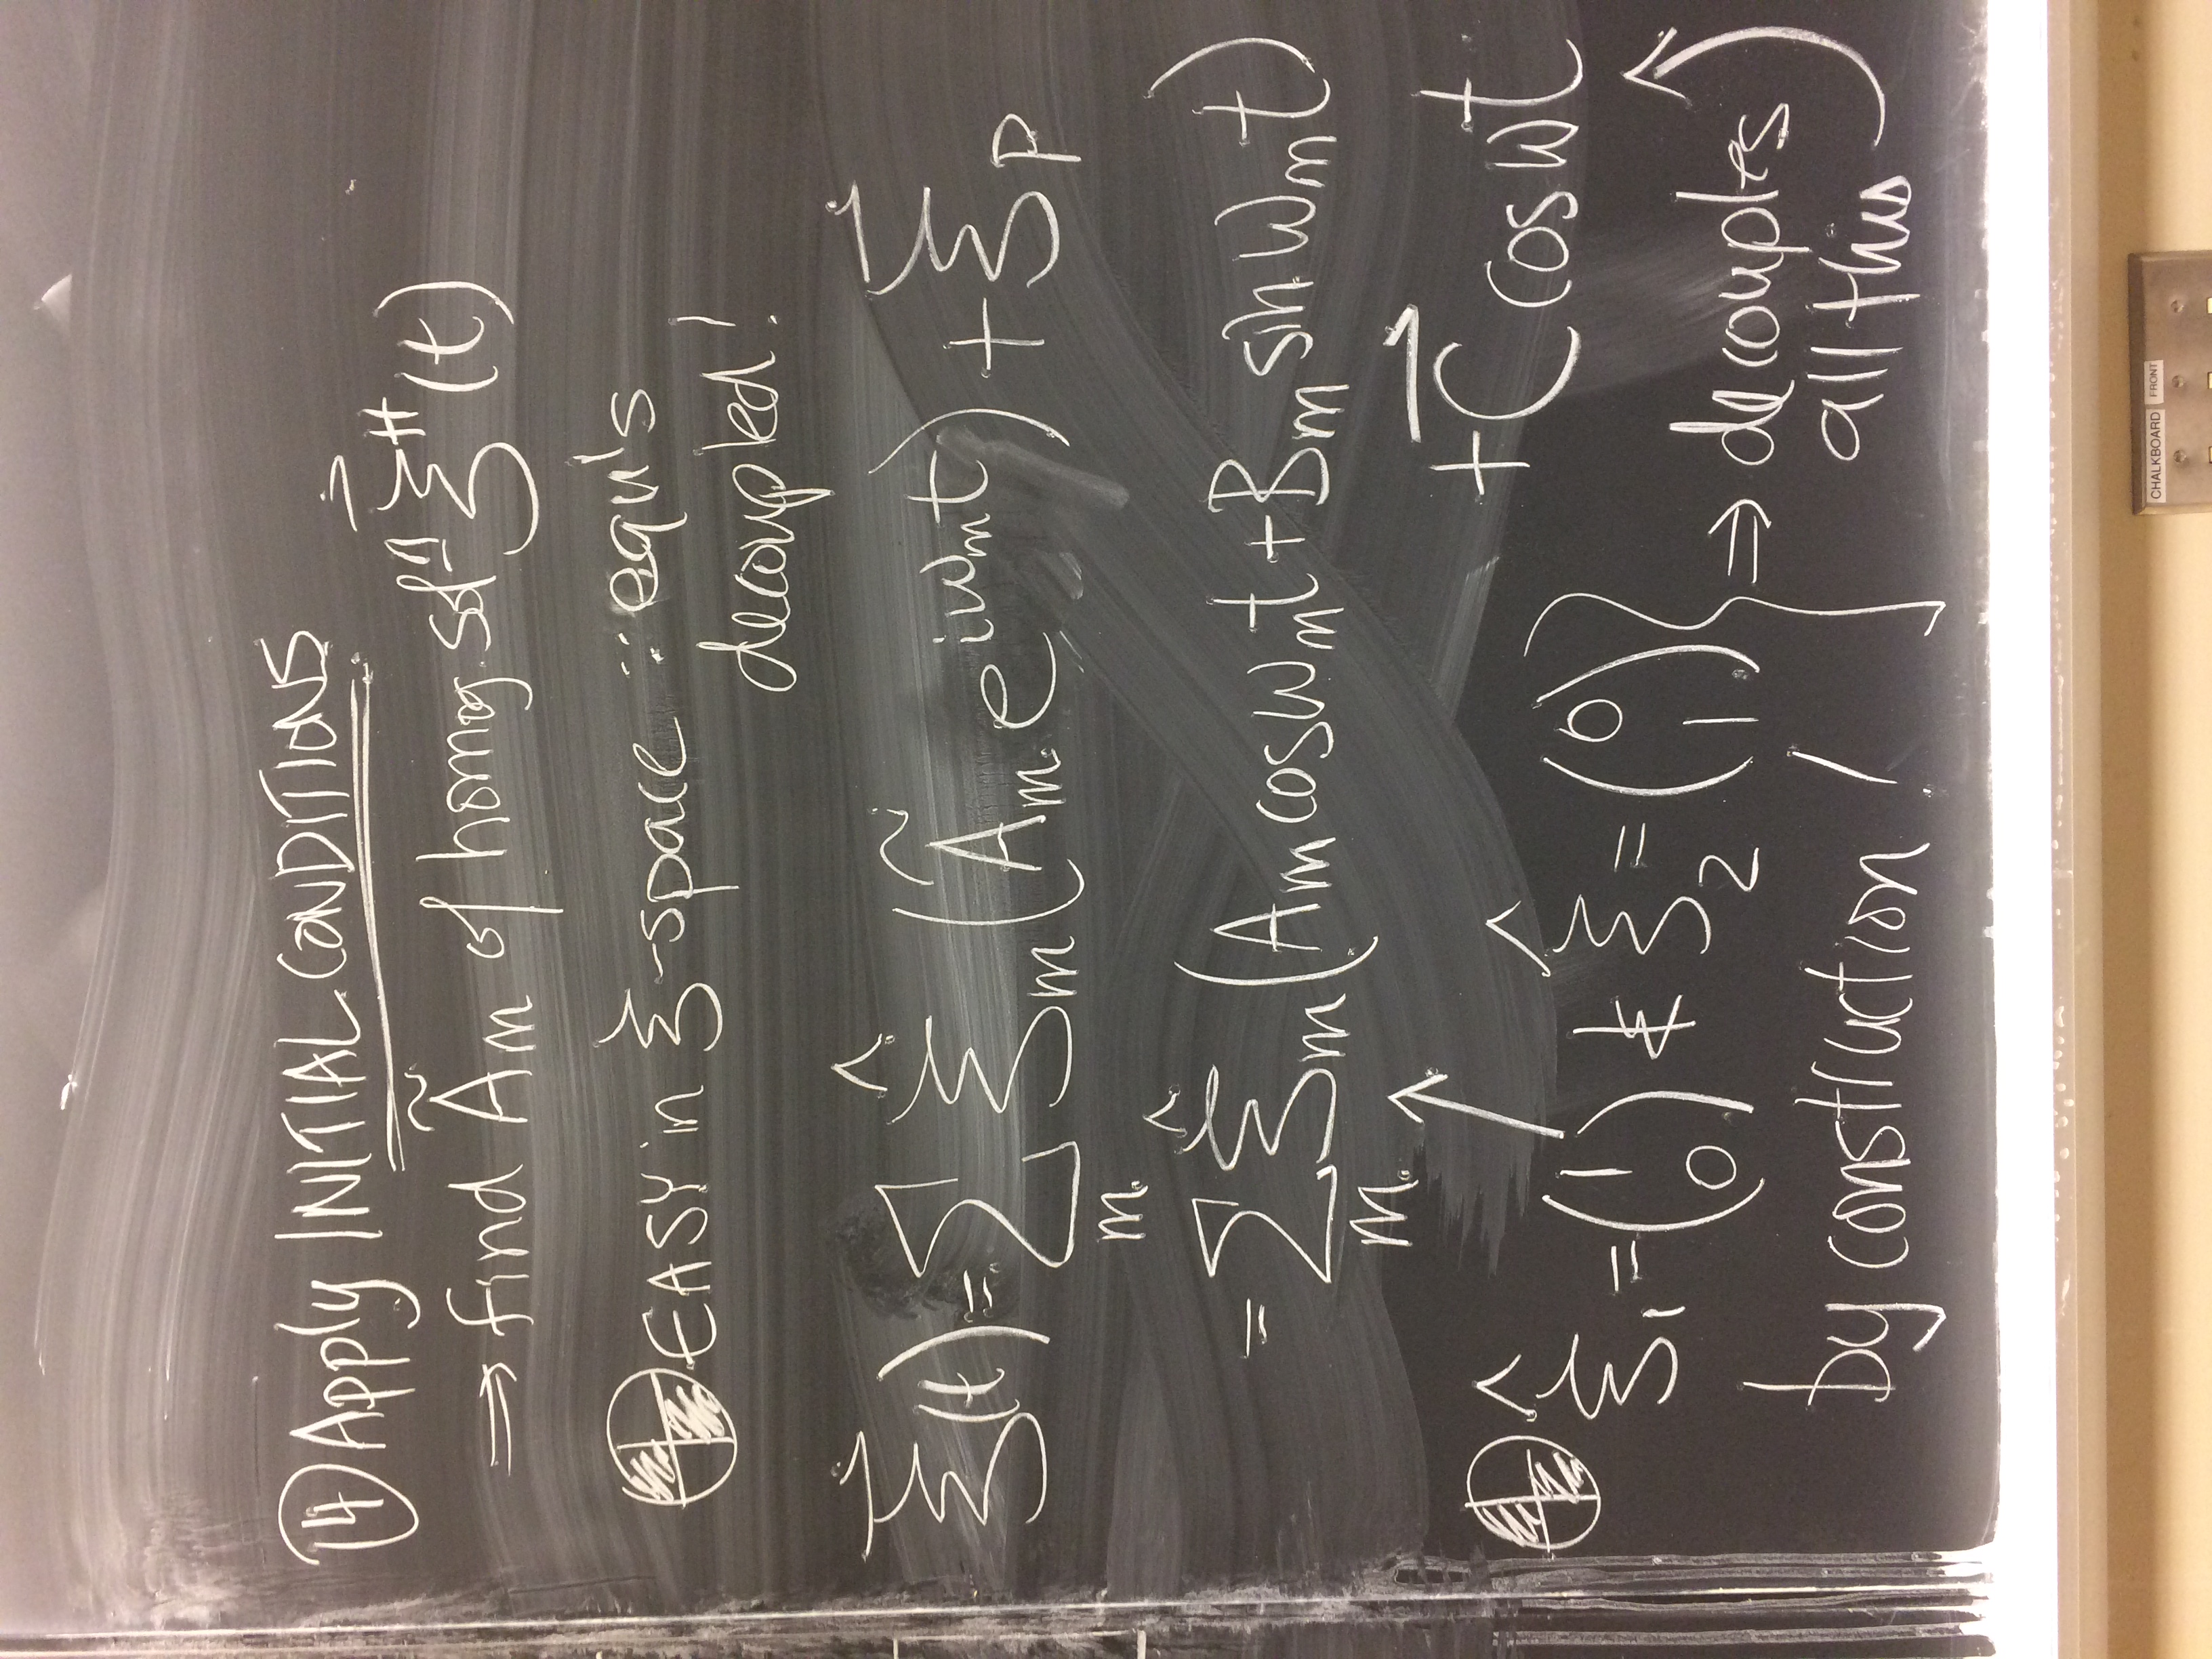 ⑭ Apply INITIAL CONDITIONS
⇒ find Ãm of homog. solⁿ ξ⃗ᴴ(t)
⊕ EASY in ξ-space ∵ equ's
decoupled!
ξ⃗(t) = Σₘ ξ̂ₘ (Ãₘ e^{iωₘt}) + ξ⃗p
= Σₘ ξ̂ₘ (Aₘ cos ωₘt + Bₘ sin ωₘt)
+ C⃗ cos ωt
⊕ ξ̂₁ = (1 0) & ξ̂₂ = (0 1) } ⇒ decouples
by construction! all this
CHALKBOARD FRONT